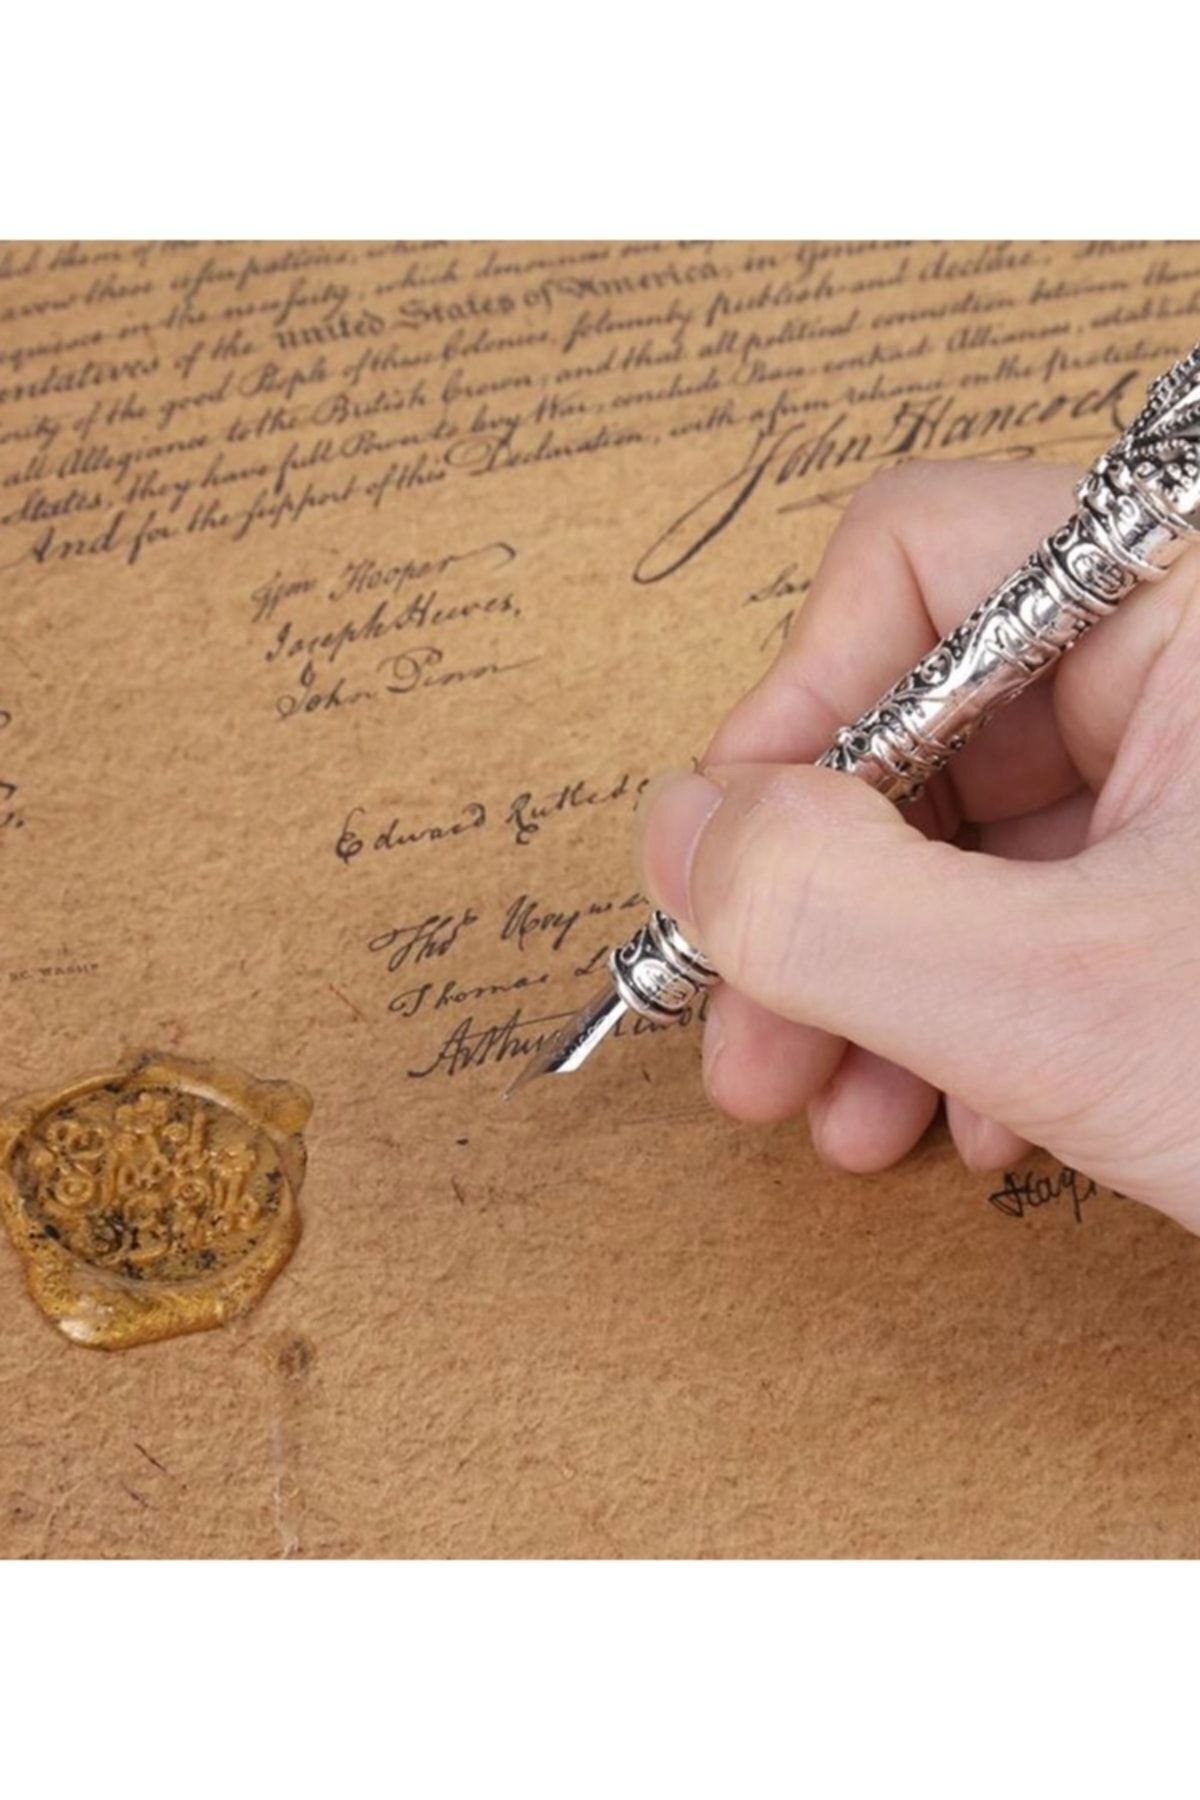 led them of the
avow these usurpations, which
equiesce in the necessity, which denounces our
entatives of the united States of America, in General
ority of the good People of these Colonies, solemnly publish and declare, That
all Allegiance to the British Crown, and that all political connection between them
States, they have full Power to levy War, conclude Peace contract Alliances, establish
And for the support of this Declaration, with a firm reliance on the protection
John Hancock
Wm Hooper
Joseph Hewes,
John Penn
Edward Rutledg
Thos Heywa
Thomas L
Arthur